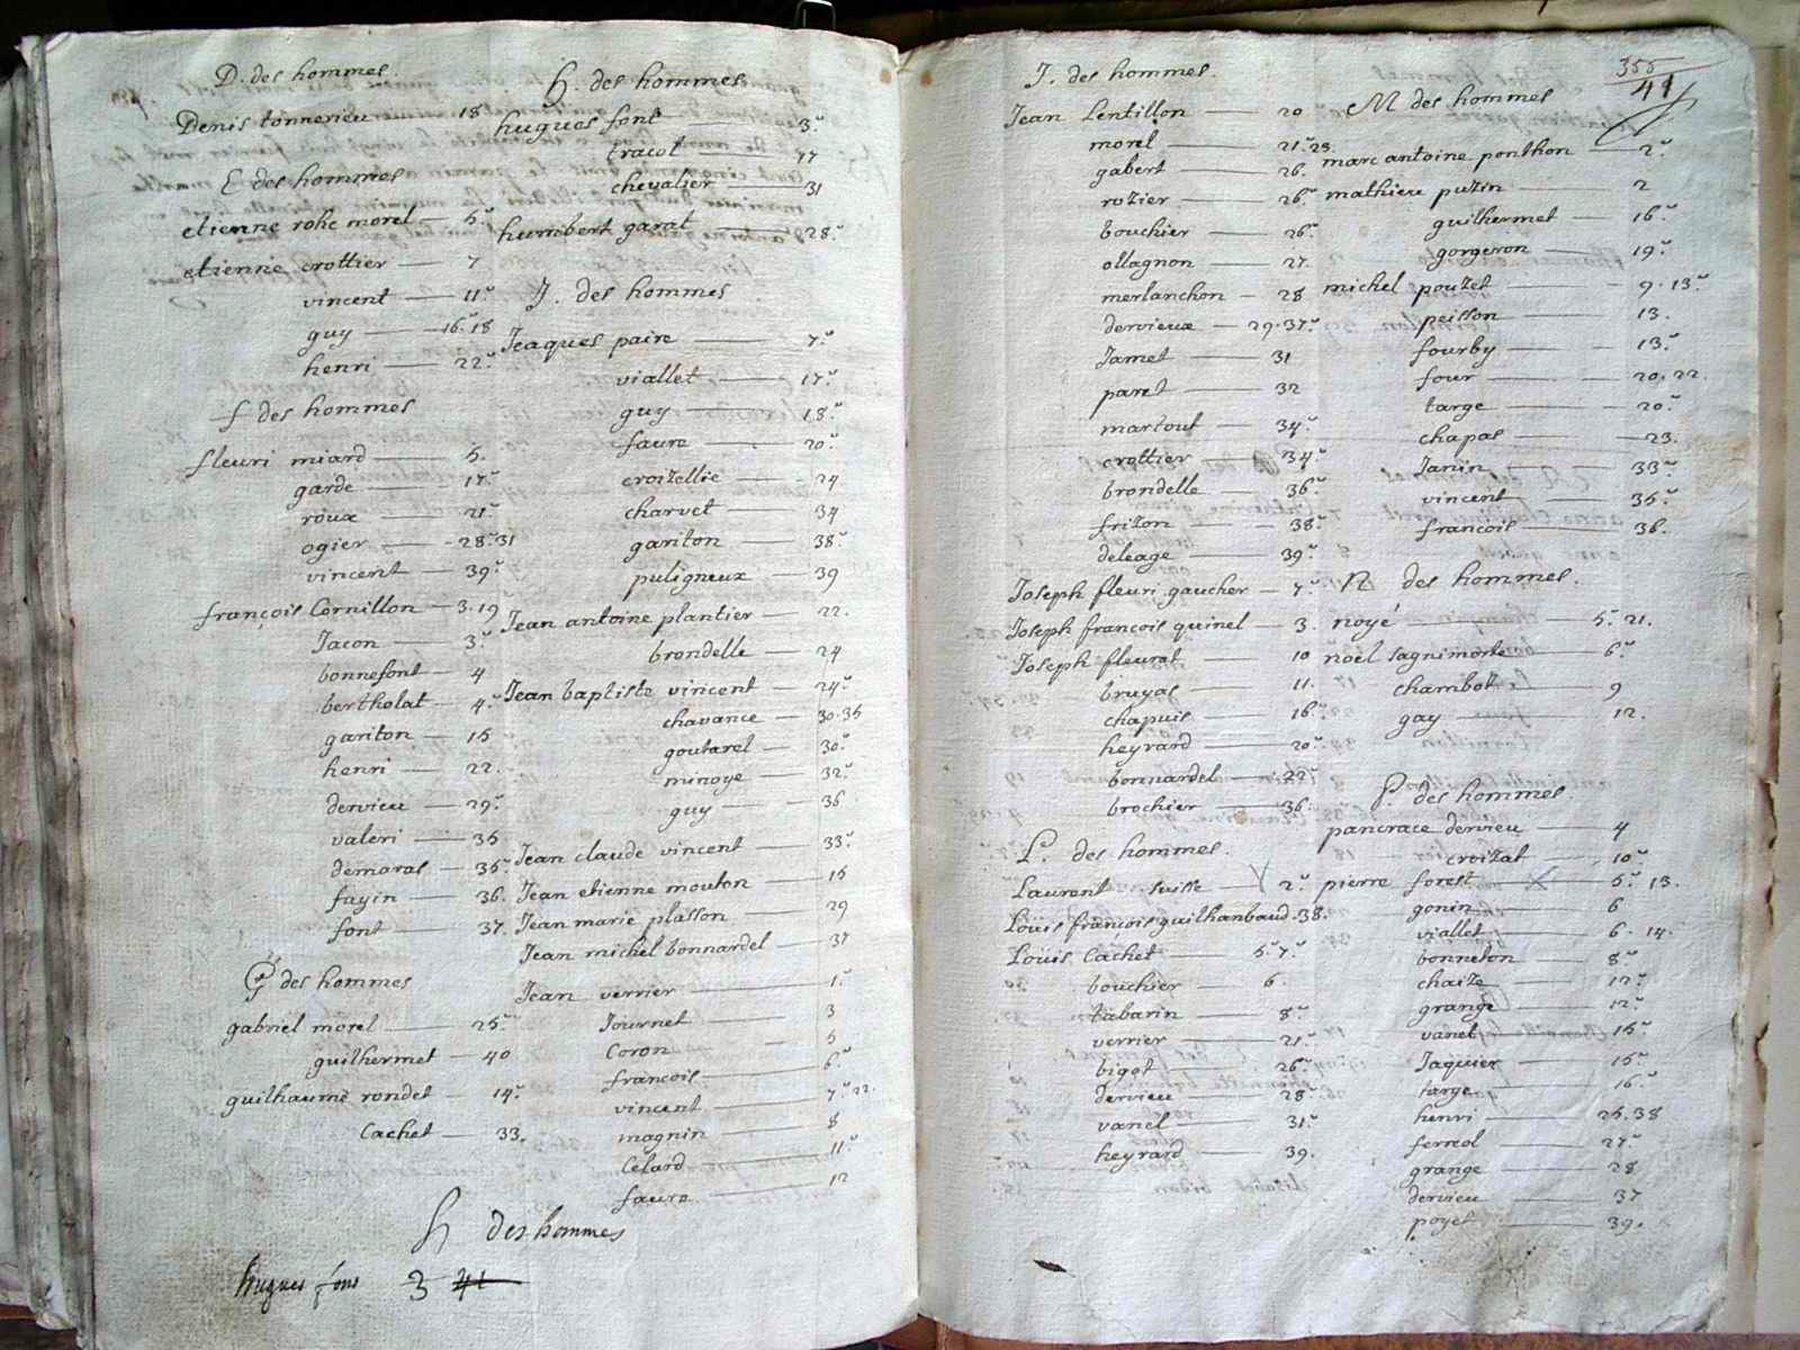 D. des hommes.
Denis tonnerieu 18
E des hommes
etienne rohc morel 5.v
etienne crottier 7
vincent 11.v
guy 16.v 18
henri 22.v
f des hommes
fleuri miard 5.
garde 17.v
roux 21.v
ogier 28.v 31
vincent 39.v
françois Cornillon 3.19
Jacon 3.v
bonnefont 4
bertholat 4.v
gariton 15
henri 22.
dervieu 29.v
valeri 35
demaras 35.v
fayin 36.
font 37.
G des hommes
gabriel morel 25.v
guilhermet 40
guilhaume rondet 14.v
Cachet 33.
H. des hommes
hugues font 3.v
tracol 17
chevalier 31
humbert garat 28.v
J. des hommes
Jeaques paire 7.v
viallet 17.v
guy 18.v
faure 20.v
croizellie 24
charvet 34
gariton 38.v
puligneux 39
Jean antoine plantier 22.
brondelle 24
Jean baptiste vincent 24.v
chavance 30.35
goutarel 30.v
minoye 32.v
guy 36
Jean claude vincent 33.v
Jean etienne mouton 15
Jean marie plasson 29
Jean michel bonnardel 37
Jean verrier 1.v
Journet 3
Coron 5
francois 6.v
vincent 7.v 22.
magnin 8
Celard 11.v
faure 12
H des hommes
hugues fons 3 41
J. des hommes.
Jean Lentillon 20
morel 21.v 23.
gabert 26.
rozier 26.v
bouchier 26.v
ollagnon 27.
merlanchon 28
dervieux 29.37.v
Jamet 31
paret 32
martout 34.v
crottier 34.v
brondelle 36.v
frizon 38.v
deleage 39.v
Joseph fleuri gaucher 7.v
Joseph francois quinel 3.
Joseph fleurat 10
bruyas 11.
chapuis 16.v
heyrard 20.v
bonnardel 22.v
brochier 36.
L. des hommes.
Laurent suisse 2.v
Loüis françois guilhanbaud 38.
Loüis Cachet 5.v 7.v
bouchier 6
tabarin 8.v
verrier 21.v
bigot 26.v
dervieu 28.v
vanel 31.v
heyrard 39.
355
41
M des hommes
marc antoine ponthon 2.v
mathieu puzin 2
guilhermet 16.v
gorgeron 19.v
michel pouzet 9.13.v
peisson 13.
fourby 13.v
four 20.22.
targe 20.v
chapas 23.
Janin 33.v
vincent 35.v
francois 36.
N des hommes.
noyé 5.21.
noel sagnimorte 6.v
chambot 9
gay 12.
P. des hommes
pancrace dervieu 4
croizat 10.v
pierre forest 5.v 13.
gonin 6
viallet 6.14.
bonneton 8.v
chaize 12.v
grange 12.v
vanel 15.v
Jaquier 15.v
targe 16.v
henri 25.38
ferreol 27.v
grange 28
dervieu 37
poyet 39.